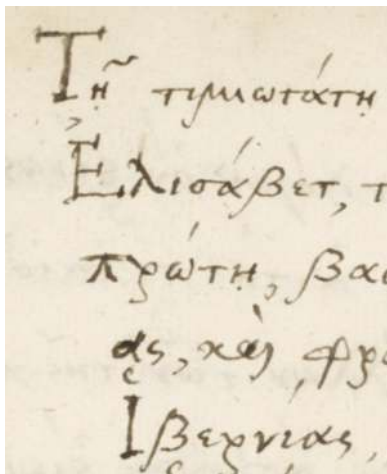 Τῇ τιμιωτάτη
Ἐλισάβετ, τ
πρώτῃ, βασ
ας, καὶ φρ
Ἱβερνίας,